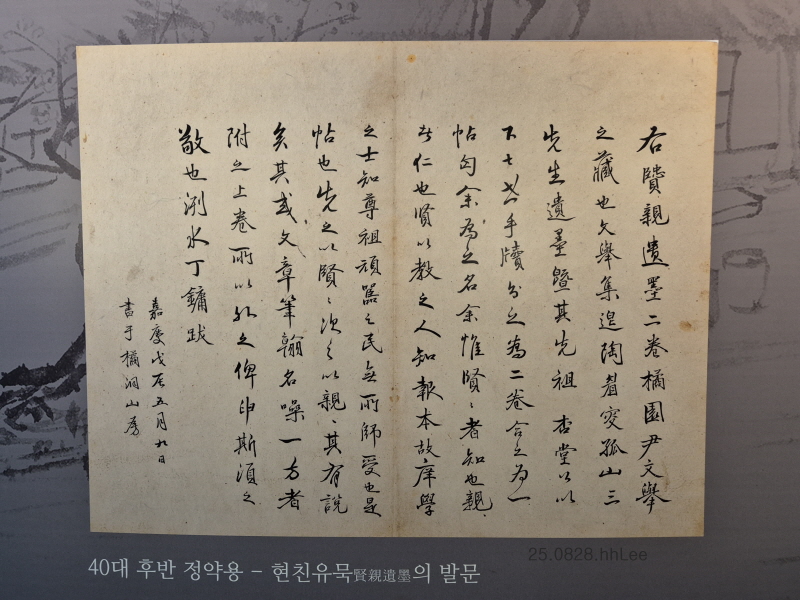 右賢親遺墨二卷橘園尹文擧
之藏也文擧集退陶眉叟孤山三
先生遺墨曁其先祖杏堂公以
下七世手牘分之爲二卷合之爲一
帖匄余爲之名余惟賢〻者知也親〻
者仁也賢以敎之人知報本故庠學
之士知尊祖頑嚚之民無所師受也是
帖也先之以賢〻次之以親〻其有說
矣其或文章筆翰名噪一方者
附之上卷所以別之俾申斯須之
敬也洌水丁鏞跋
嘉慶戊辰五月九日
書于橘洞山房
25.0828.hhLee
40대 후반 정약용 – 현친유묵賢親遺墨의 발문